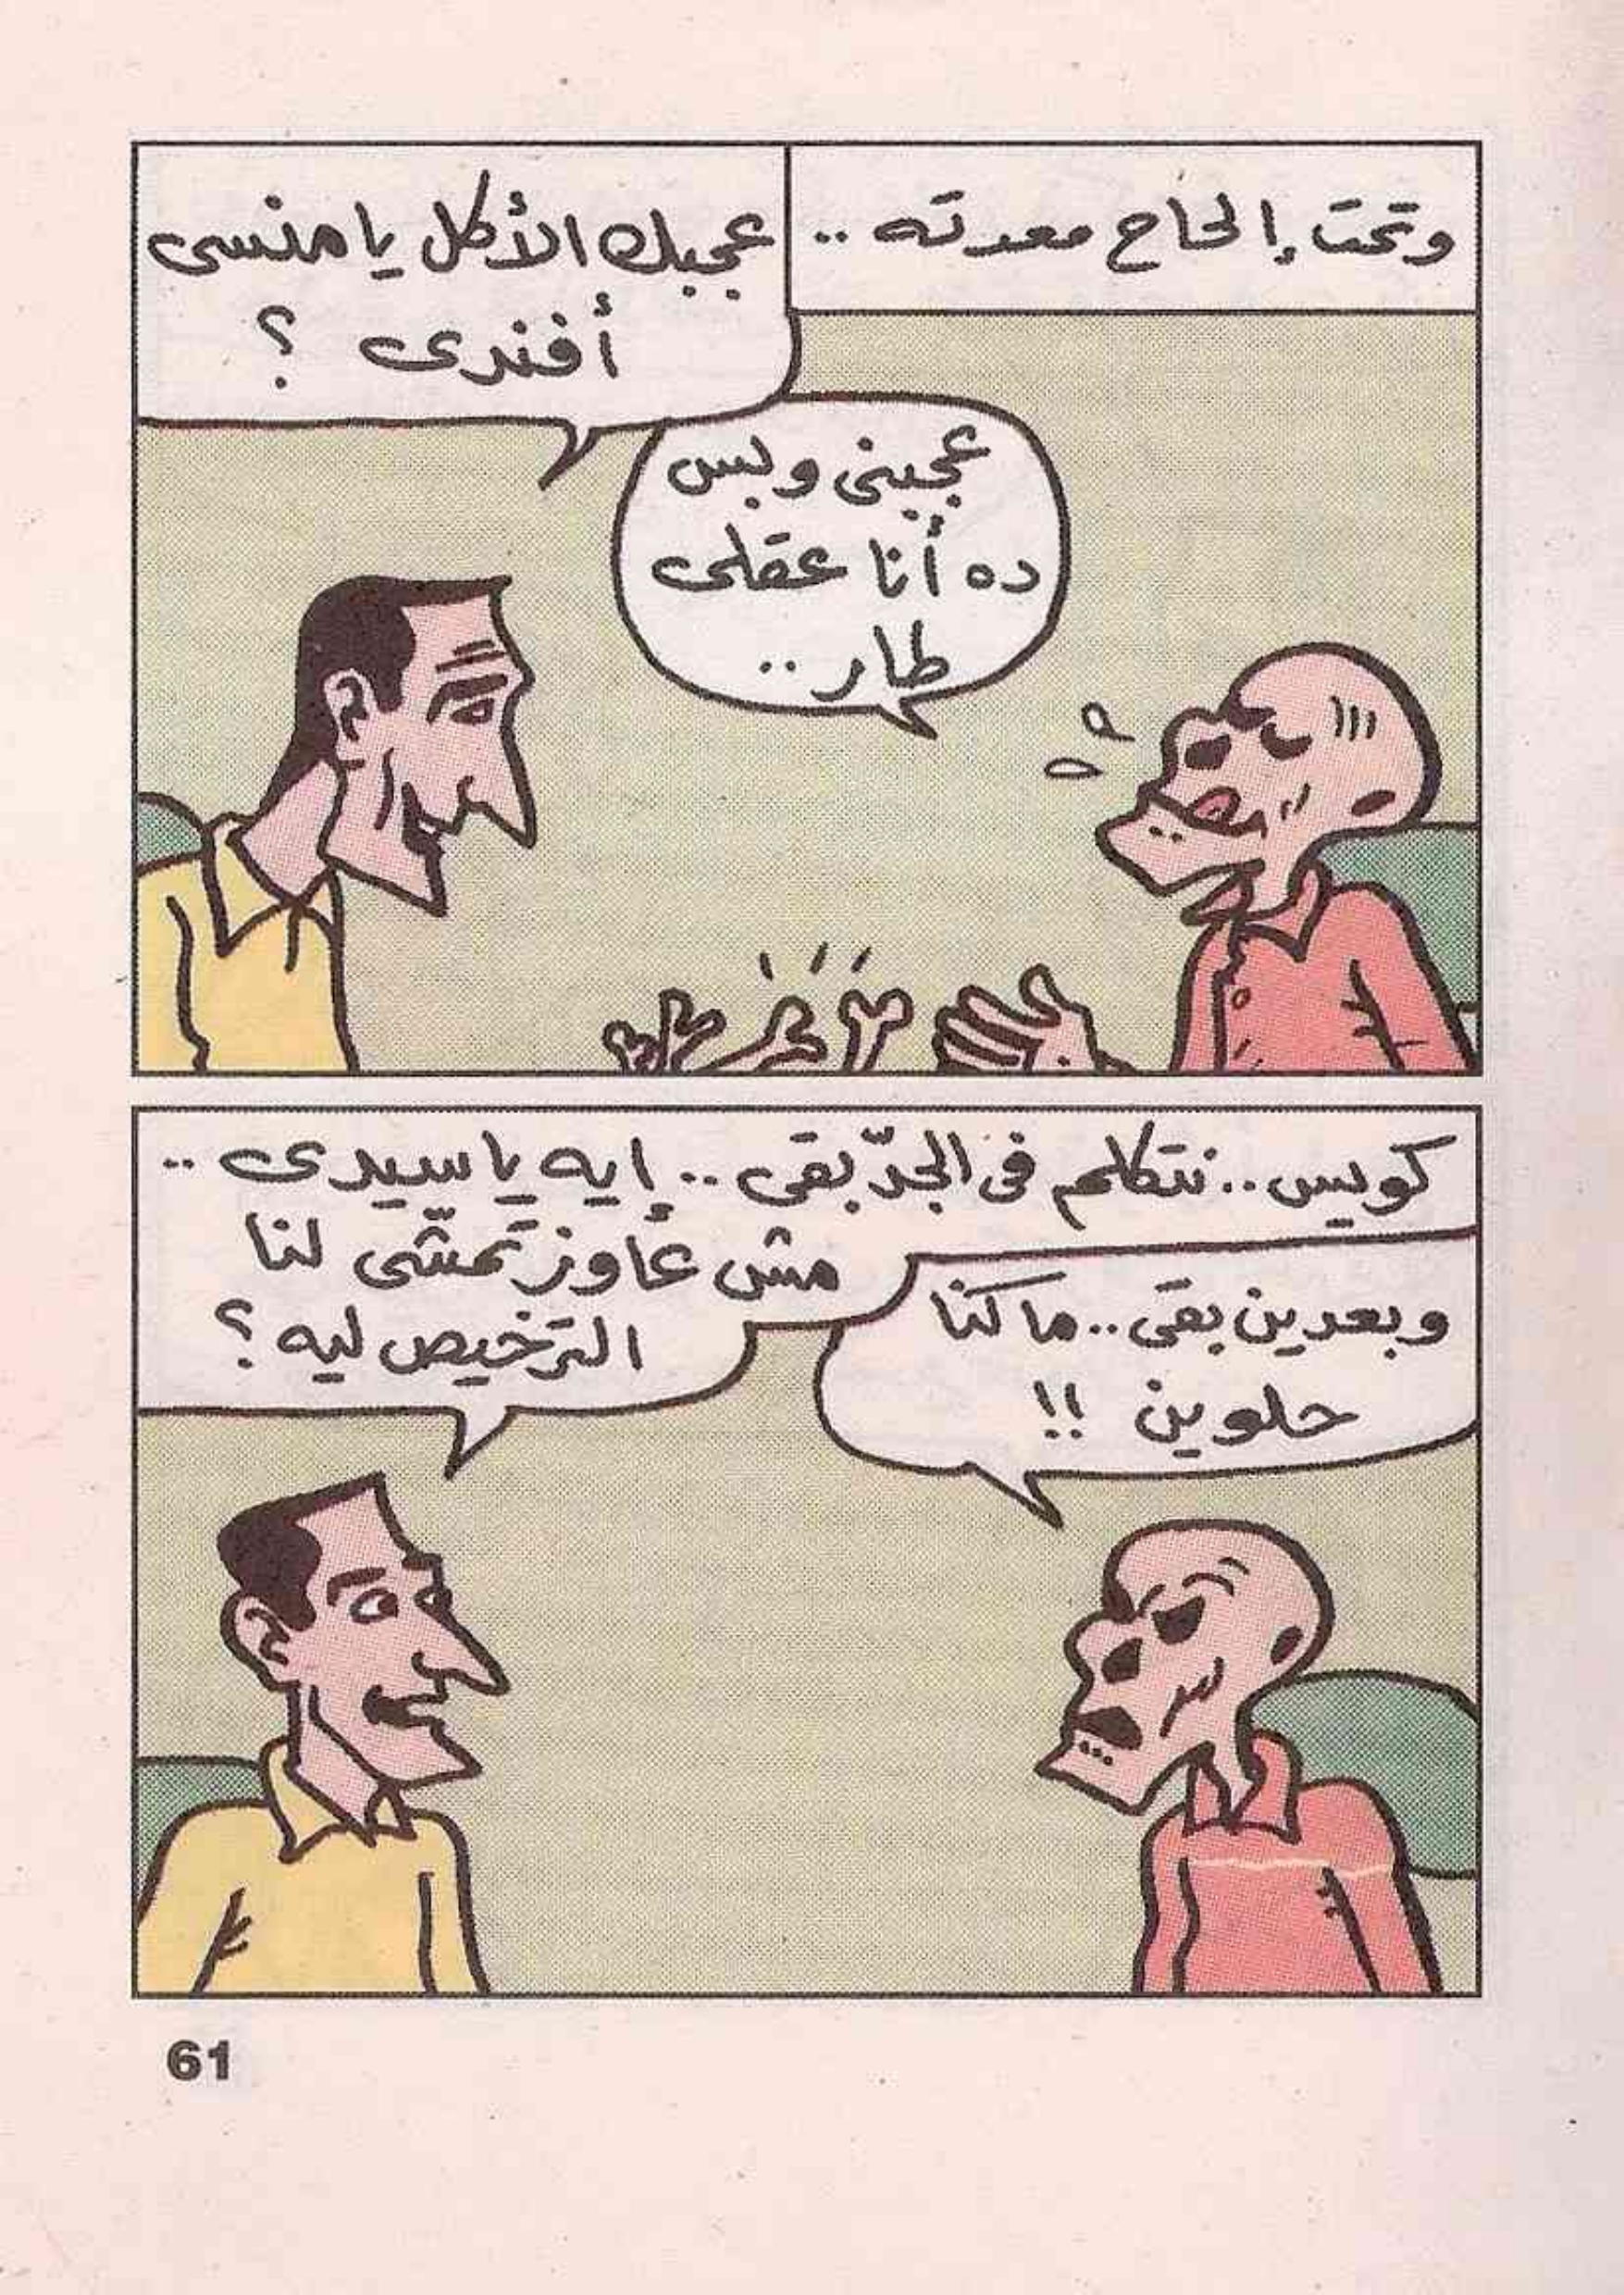 وتحت إلحاح معدته ..
عجبك الأكل يا منسى
أفندى ؟
عجبنى وبس
ده أنا عقلى
طار ..
كويس .. نتكلم فى الجدّ بقى .. إيه يا سيدى ..
مش عاوز تمشّى لنا
الترخيص ليه ؟
وبعدين بقى .. ما كنا
حلوين !!
61